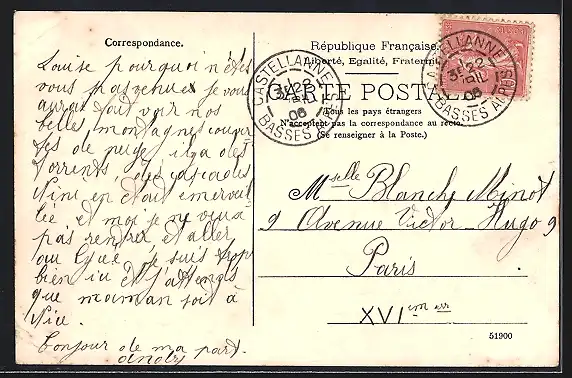 Correspondance.
Louise pourquoi n'êtes
vous pas venue je vous
aurai fait voir nos
belles montagnes couver
tes de neige il y a des
torrents des cascades
Nini en était emerveil
lée et moi je ne veux
pas rentrer et aller
au Lycée je suis trop
bien ici et j'attends
que maman soit à
Nice.
Bonjour de ma part.
André
République Française
Liberté, Egalité, Fraternité
CARTE POSTALE
Tous les pays étrangers
N'acceptent pas la correspondance au recto.
(Se renseigner à la Poste.)
CASTELLANNE
22
08
BASSES ALPES
CASTELLANNE
3E 22
AVRIL
08
BASSES ALPES
Mselle Blanche Minot
9 Avenue Victor Hugo 9
Paris
XVIem arr
51900